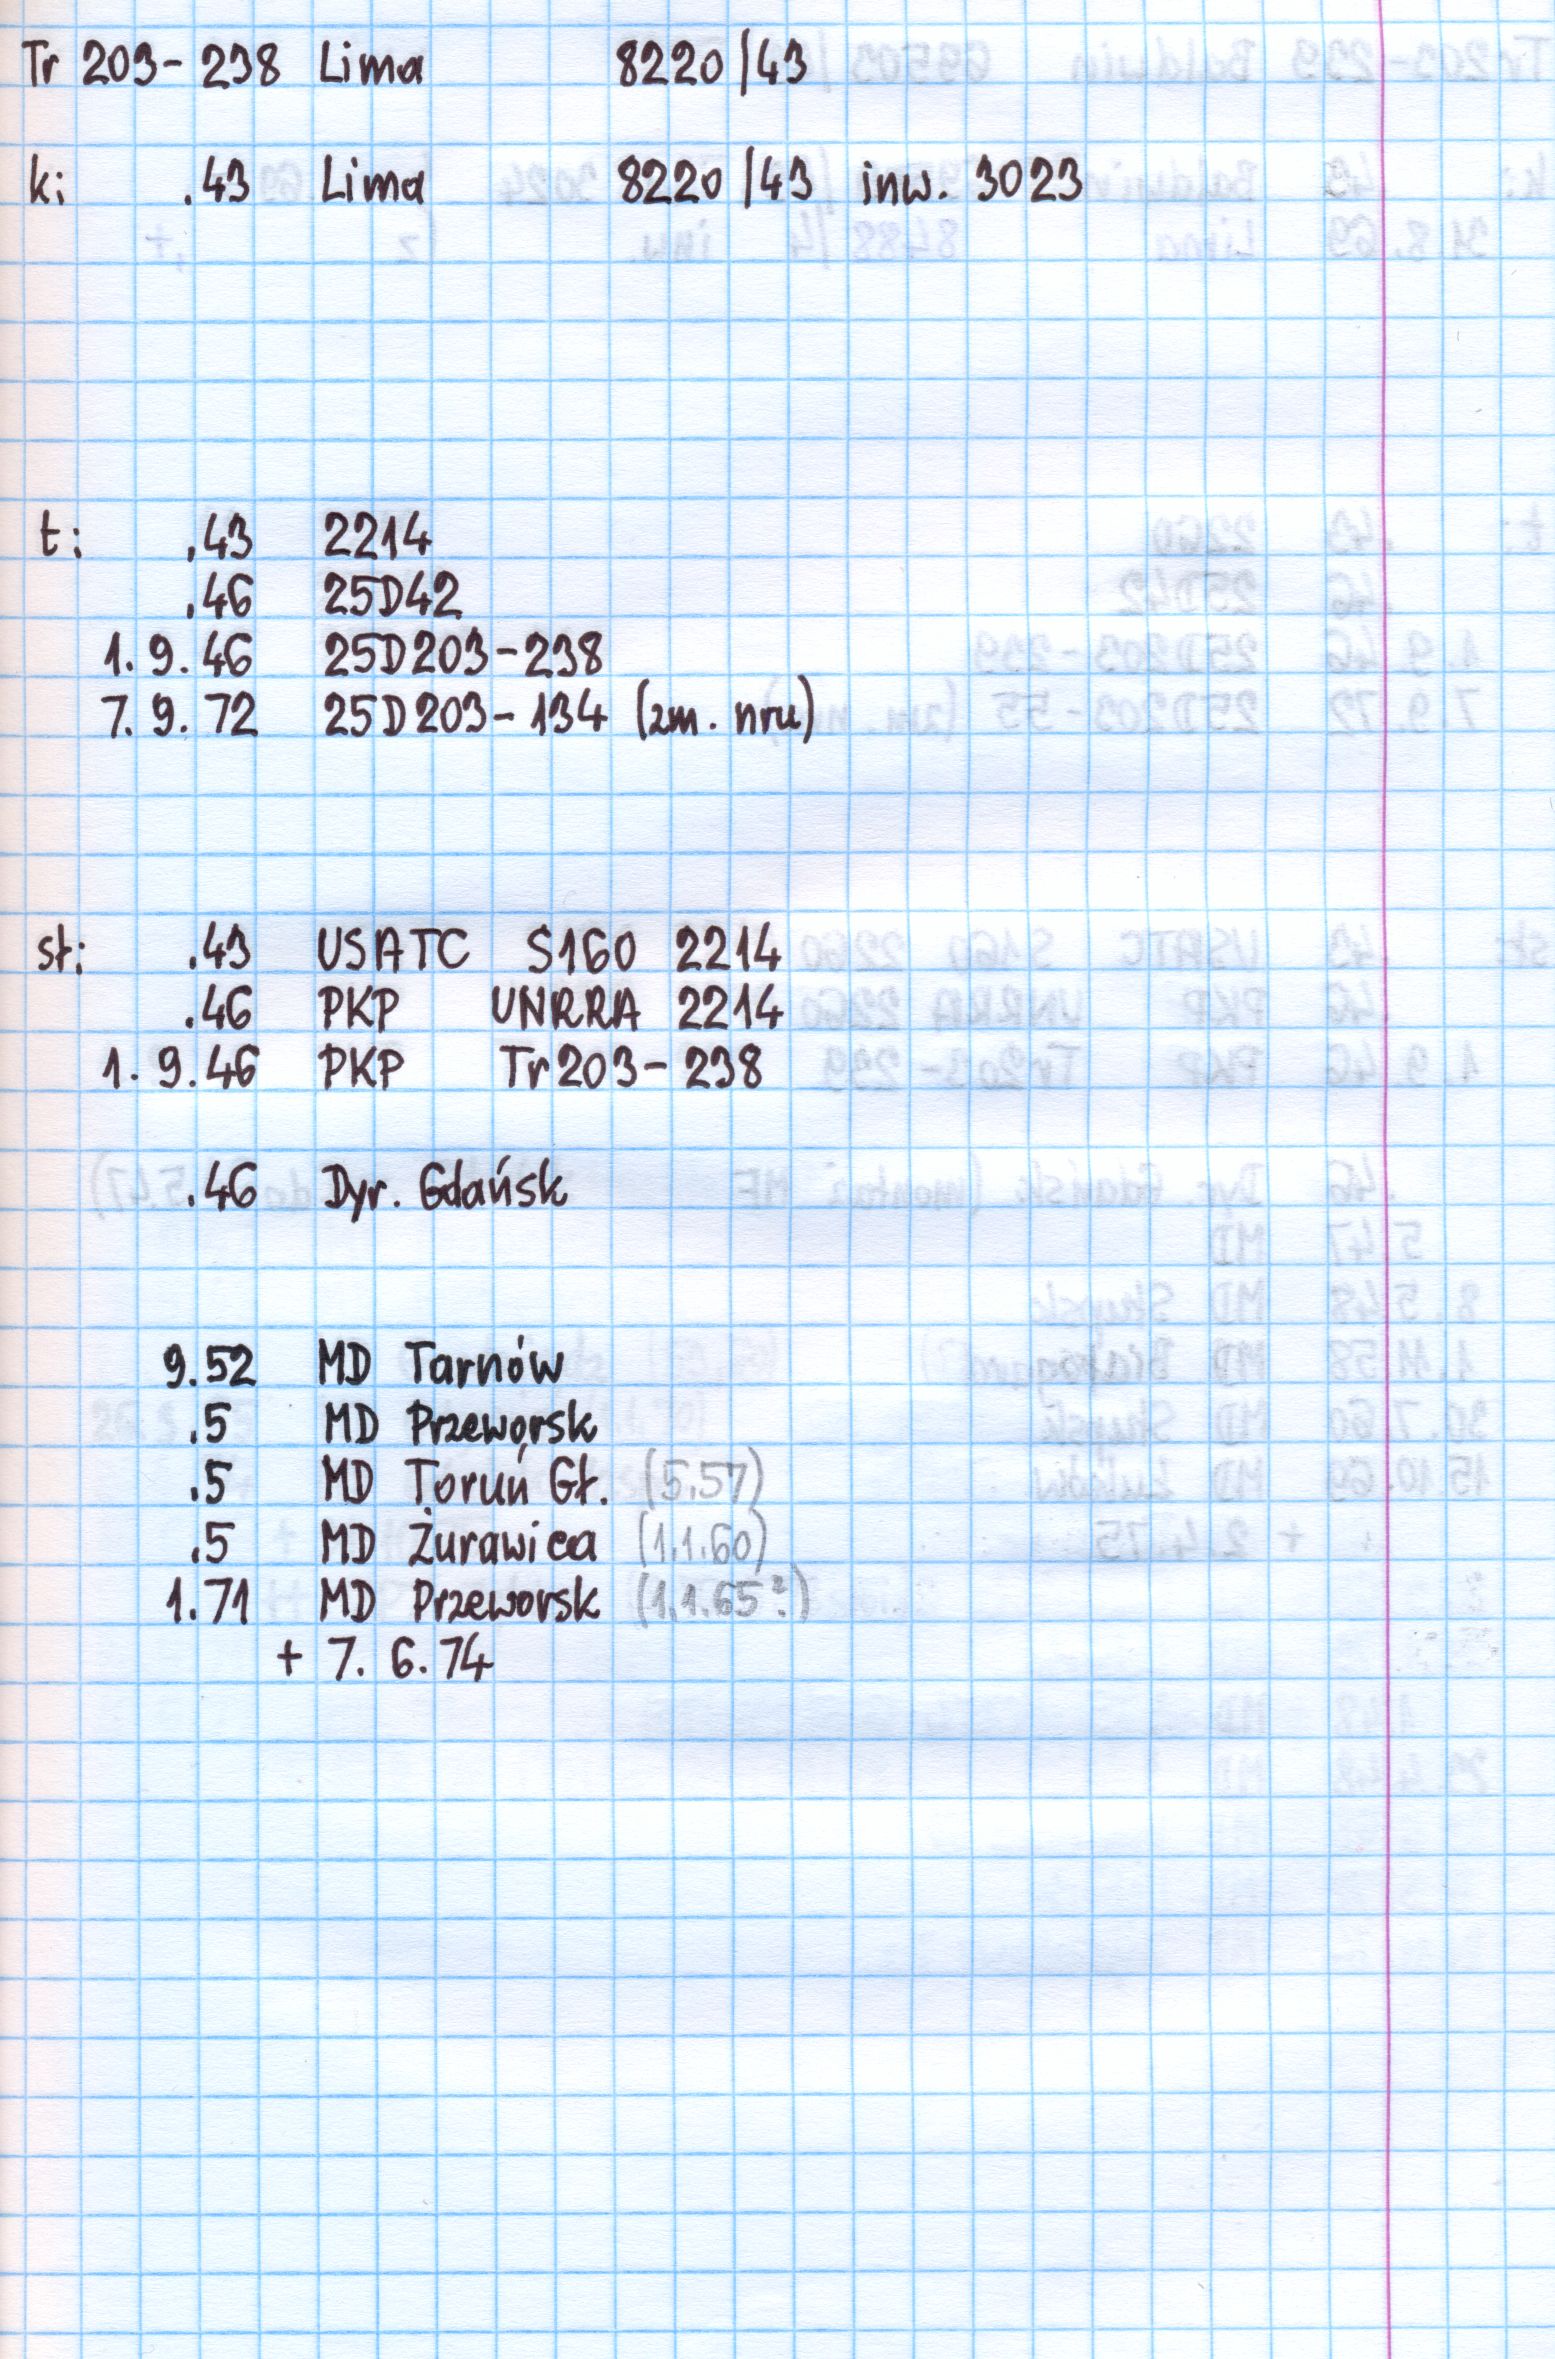 Tr 203-238 Lima 8220/43
k: .43 Lima 8220/43 inw. 3023
t: .43 2214
.46 25D42
1.9.46 25D203-238
7.9.72 25D203-134 (zm. nru)
st: .43 USATC S160 2214
.46 PKP UNRRA 2214
1.9.46 PKP Tr203-238
.46 Dyr. Gdańsk
9.52 MD Tarnów
.5 MD Przeworsk
.5 MD Toruń Gł. (5.57)
.5 MD Żurawica (1.1.60)
1.71 MD Przeworsk (1.1.65?)
+ 7.6.74